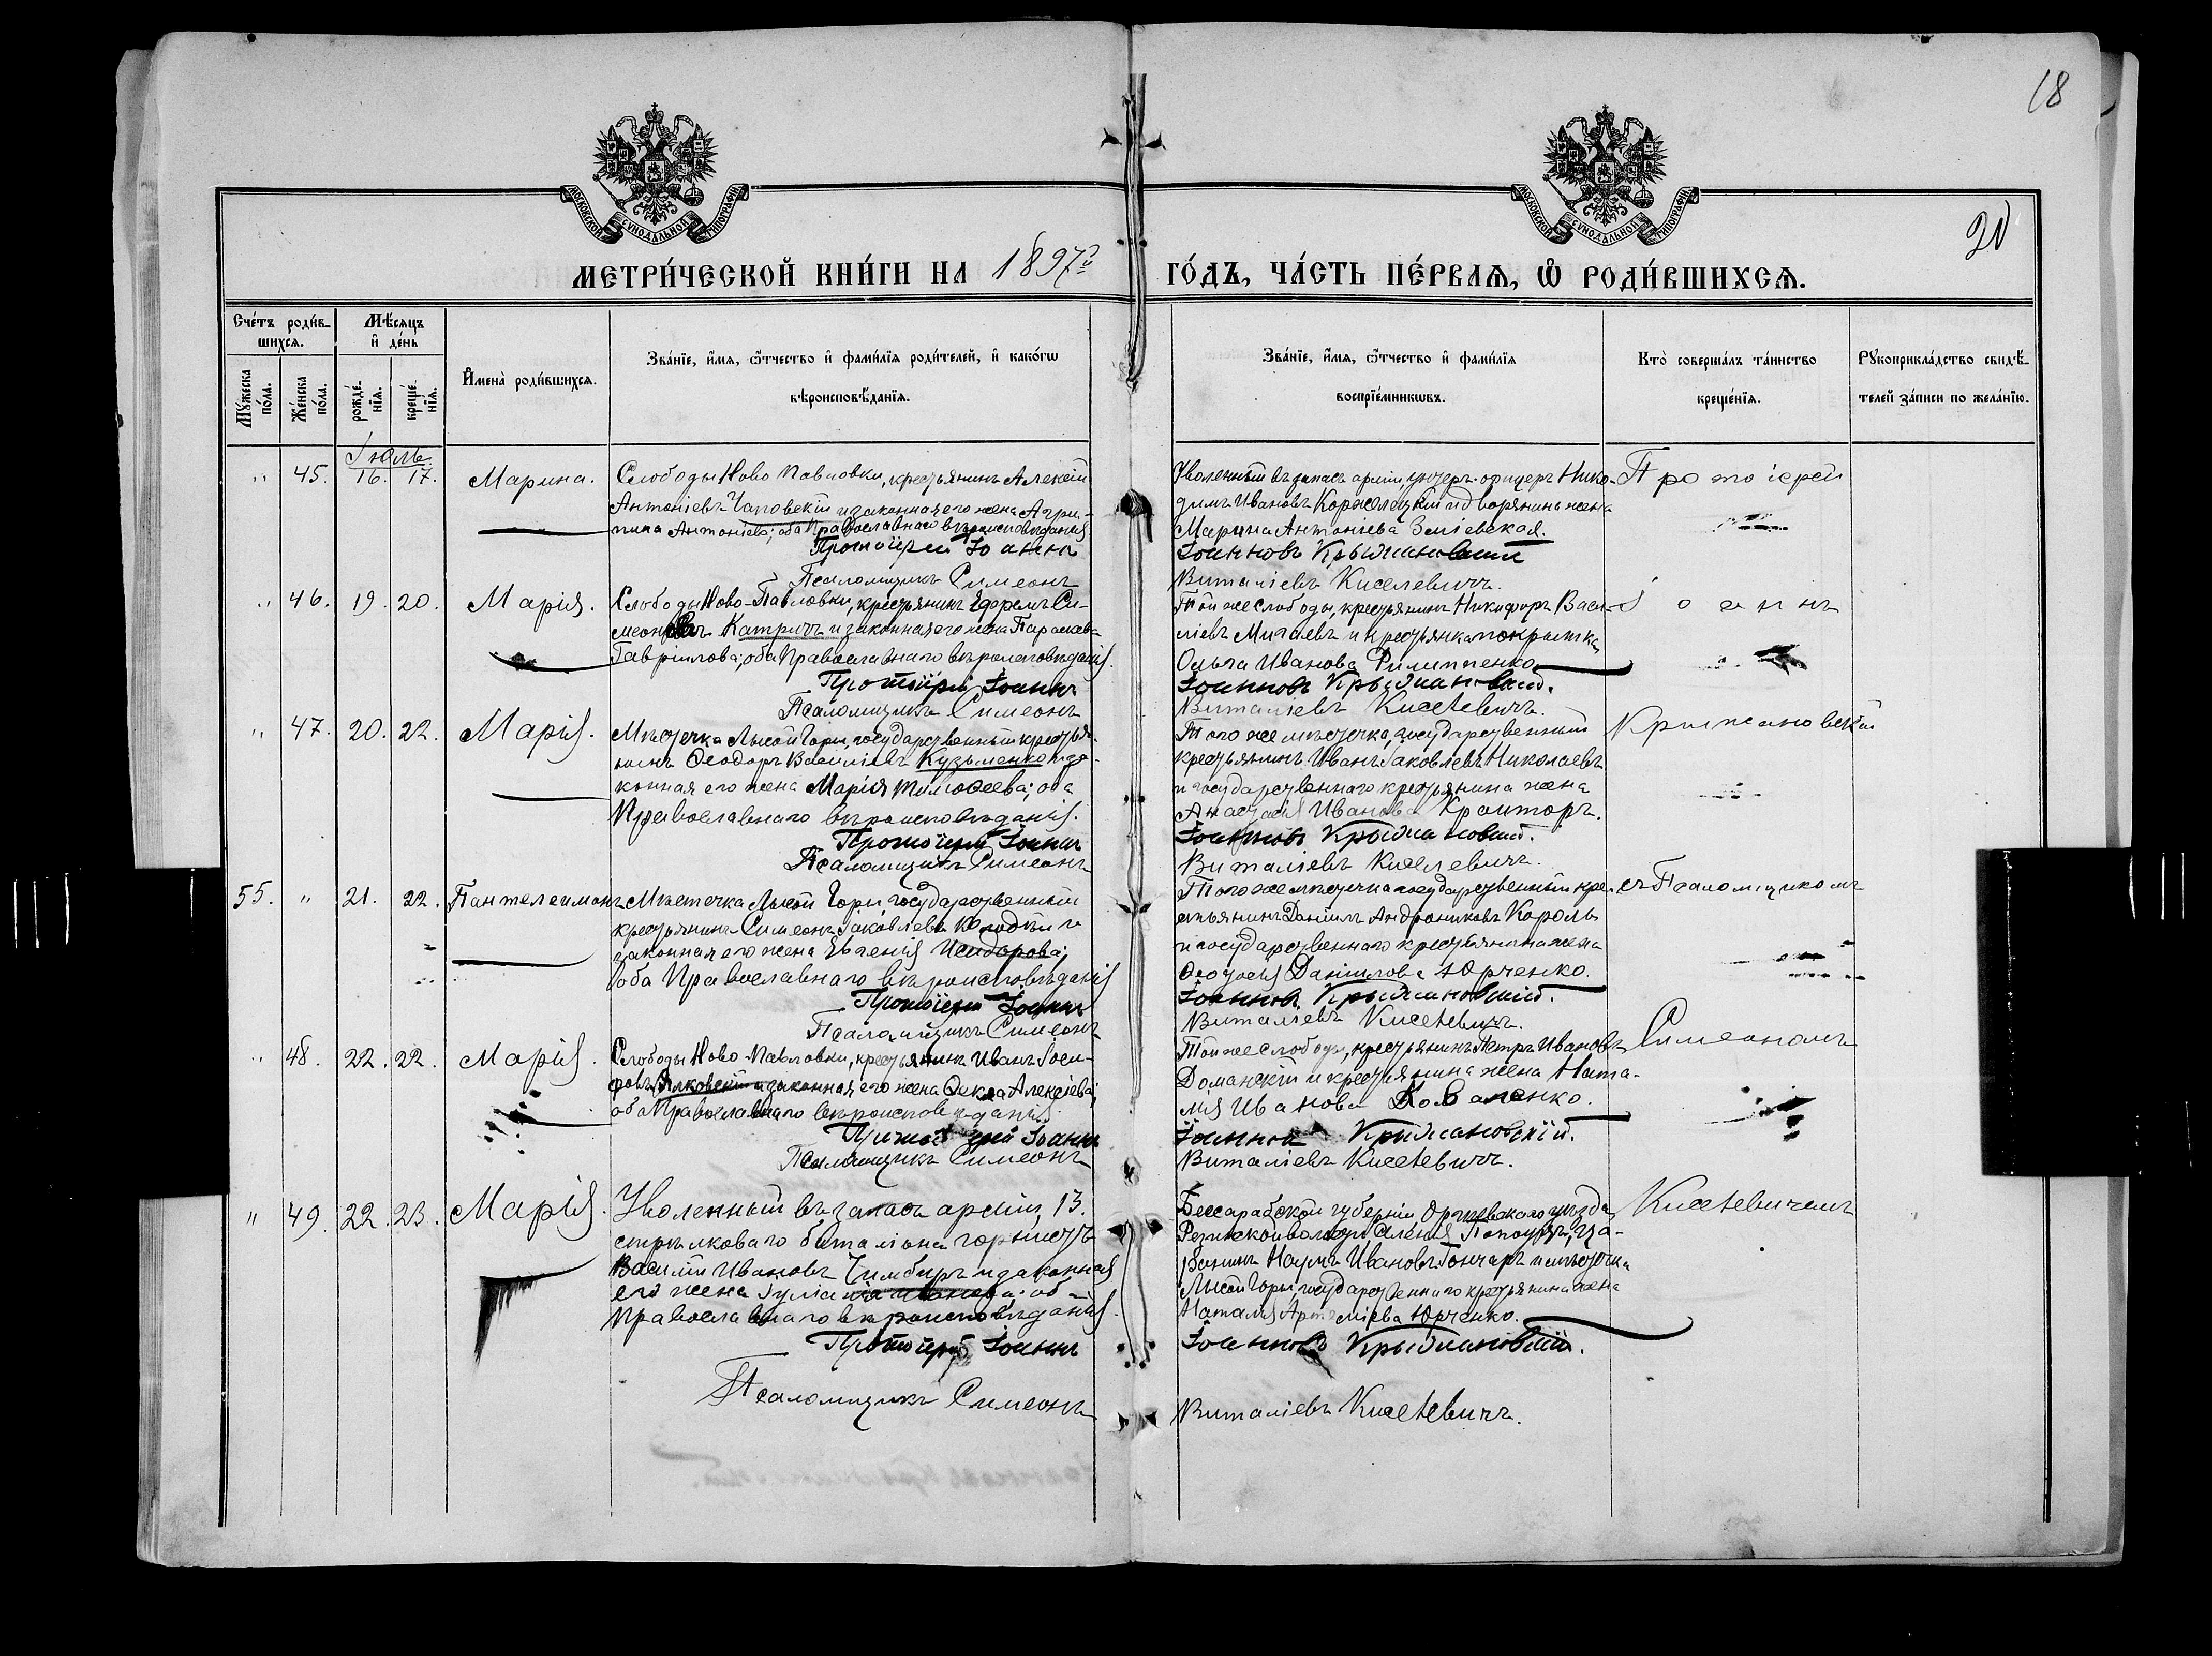 18
МОСКОВСКОЙ СѴНОДАЛЬНОЙ ТИПОГРАФІИ
МОСКОВСКОЙ СѴНОДАЛЬНОЙ ТИПОГРАФІИ
20
МЕТРИ́ЧЕСКОЙ КНИ́ГИ НА 1897й ГО́ДЪ, ЧА́СТЬ ПЕ́РВАѦ, Ѡ҆ РОДИ́ВШИХСѦ.
Сче́тъ роди́в-
шихсѧ.
Мѣ́сѧцъ
и҆ де́нь
Мꙋ́жеска
по́ла.
Же́нска
по́ла.
рожде́-
нїѧ.
креще́-
нїѧ.
И҆мена̀ роди́вшихсѧ.
Зва́нїе, и҆́мѧ, ѻ҆́тчество и҆ фами́лїѧ роди́телей, и҆ како́гѡ
вѣроисповѣ́данїѧ.
Зва́нїе, и҆́мѧ, ѻ҆́тчество и҆ фами́лїѧ
воспрїе́мникѡвъ.
Кто̀ соверша́лъ та́инство
креще́нїѧ.
Рꙋкоприкла́дство свидѣ́-
телей за́писи по жела́нїю.
Іюль.
" 45. 16. 17. Марина.
Слободы Ново Павловки, крестьянинъ Алексій
Антоніевъ Чаповскій и законная его жена Агри-
пина Антоніева; оба Православнаго вѣроисповѣданія
Протоіерей Іоаннъ
Псаломщикъ Симеонъ
Уволенный въ запасъ арміи, унтеръ-офицеръ Нико-
димъ Ивановъ Коржелецкій и дворянина жена
Марина Антоніева Зміевская.
Іоанновъ Крыжановскій
Виталіевъ Киселевичъ.
Протоіерей
" 46. 19. 20. Марія.
Слободы Ново-Павловки, крестьянинъ Ефремъ Си-
меоновъ Катричъ и законная его жена Параскев-
Гавріилова; оба Православнаго вѣроисповѣданія.
Протоіерей Іоаннъ
Псаломщикъ Симеонъ
Той же слободы, крестьянинъ Никифоръ Васи-
ліевъ Мигаевъ и крестьянка покрытка
Ольга Иванова Филиппенко
Іоанновъ Крыжановскій.
Виталіевъ Киселевичъ.
Іоаннъ
" 47. 20. 22. Марія.
Мѣстечка Лысой Горы, государственный крестья-
нинъ Ѳеодоръ Василіевъ Кузьменко и за-
конная его жена Марія Тимоѳеева; оба
Православнаго вѣроисповѣданія.
Протоіерей Іоаннъ
Псаломщикъ Симеонъ
Того же мѣстечка, государственный
крестьянинъ Иванъ Іаковлевъ Николаевъ
и государственнаго крестьянина жена
Анастасія Иванова Кранторъ.
Іоанновъ Крыжановскій.
Виталіевъ Киселевичъ.
Крыжановскій
55. " 21. 22. Пантелеимонъ
Мѣстечка Лысой Горы, государственный
крестьянинъ Симеонъ Іаковлевъ и
законная его жена Евгенія Исидорова;
оба Православнаго вѣроисповѣданія
Протоіерей Іоаннъ
Псаломщикъ Симеонъ
Того же мѣстечка государственный кре-
стьянинъ Даніилъ Андрониковъ Король
и государственнаго крестьянина жена
Ѳеодосія Даніилова Юрченко.
Іоанновъ Крыжановскій.
Виталіевъ Киселевичъ.
съ Псаломщикомъ
" 48. 22. 22. Марія.
Слободы Ново-Павловки, крестьянинъ Иванъ Іоси-
фовъ и законная его жена Ѳекла Алексіева;
оба Православнаго вѣроисповѣданія.
Протоіерей Іоаннъ
Псаломщикъ Симеонъ
Той же слободы, крестьянинъ Петръ Ивановъ
Доманскій и крестьянина жена Ната-
лія Иванова Коваленко.
Іоанновъ Крыжановскій.
Виталіевъ Киселевичъ.
Симеономъ
" 49. 22. 23. Марія.
Уволенный въ запасъ арміи, 13.
стрѣлковаго баталіона горнистъ
Василій Ивановъ Чимбиръ и законная
его жена Іуліанія Иванова; оба
Православнаго вѣроисповѣданія.
Протоіерей Іоаннъ
Псаломщикъ Симеонъ
Бессарабской губерніи Оргѣевскаго уѣзда,
Резинской волости, селенія
Наумъ Ивановъ Гончаръ и мѣстечка
Лысой Горы, государственнаго крестьянина жена
Наталія Артеміева Юрченко.
Іоанновъ Крыжановскій.
Виталіевъ Киселевичъ.
Киселевичемъ